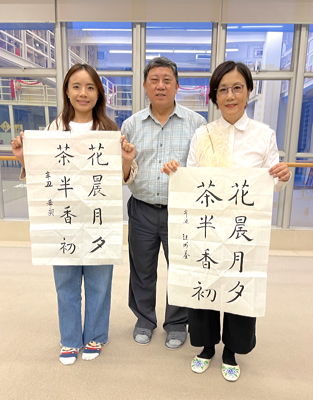 花晨月夕
茶半香初
辛丑
花晨月夕
茶半香初